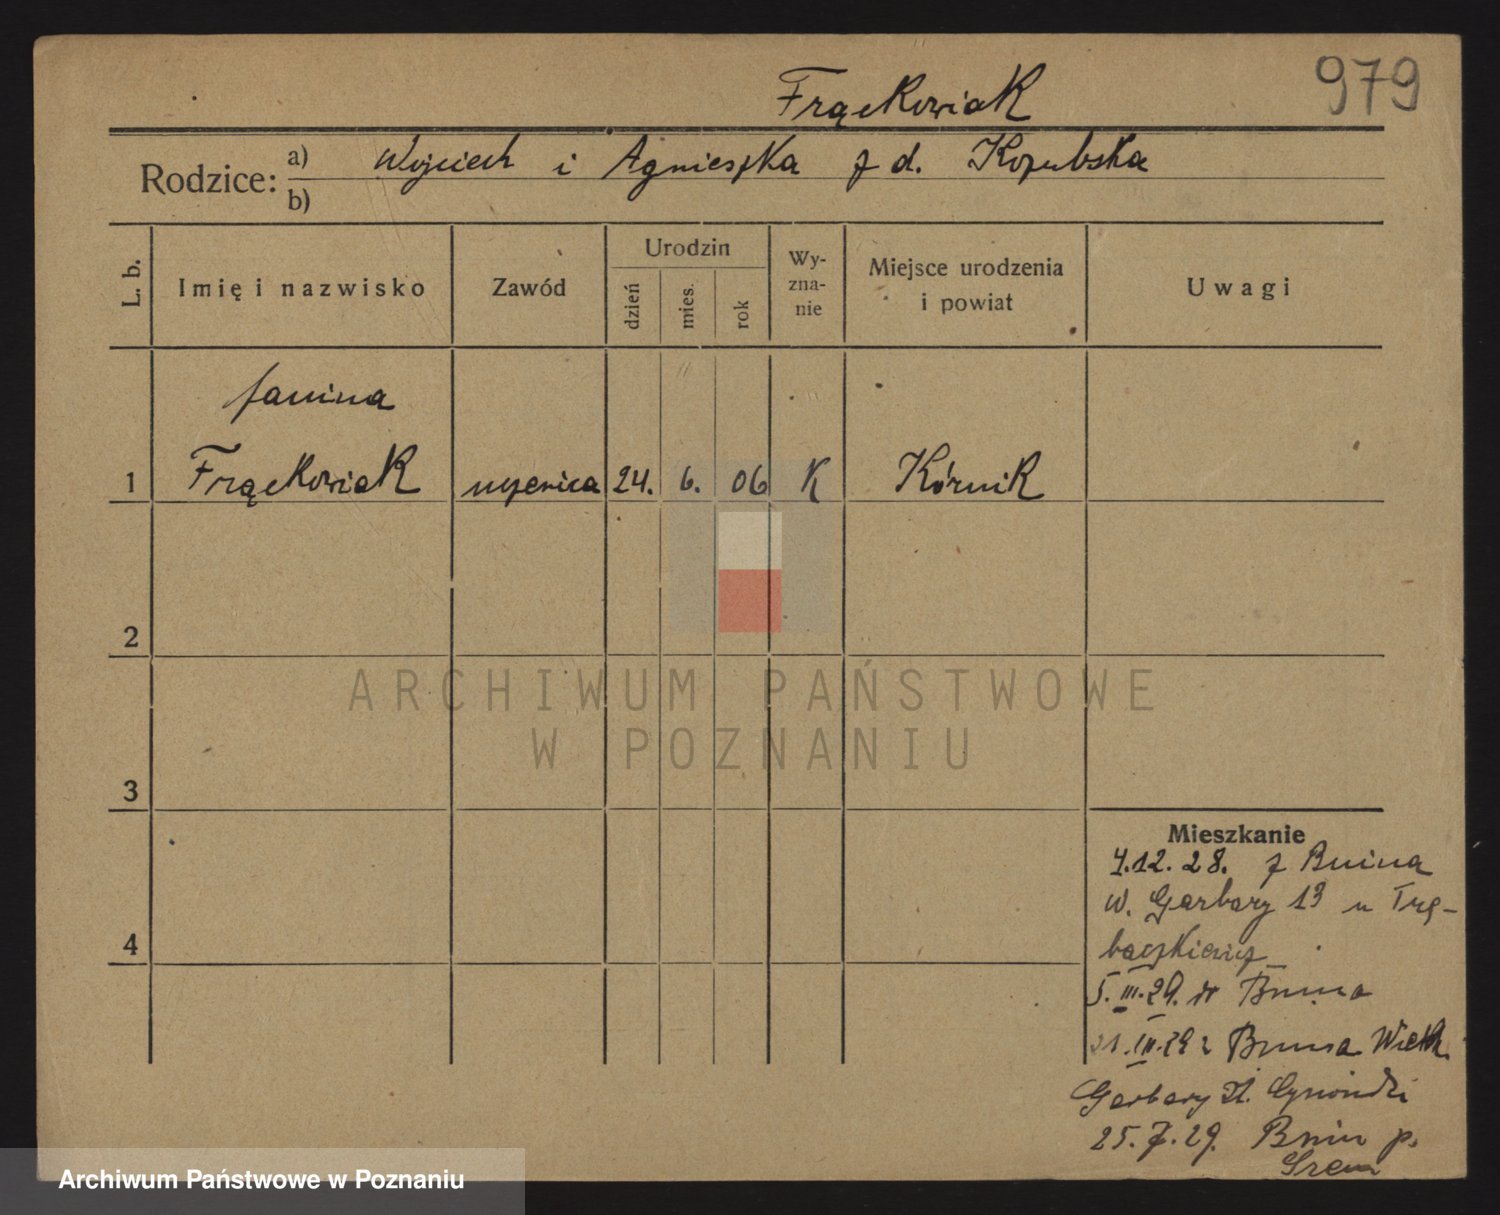 979
Frąckowiak
Rodzice:
a) Wojciech i Agnieszka z d. Kozubska
b)
L. b.
Imię i nazwisko
Zawód
Urodzin
dzień
mies.
rok
Wy-
zna-
nie
Miejsce urodzenia
i powiat
Uwagi
Janina
1 Frąckowiak uczenica 24. 6. 06 K Kórnik
2
3
4
ARCHIWUM PAŃSTWOWE
W POZNANIU
Mieszkanie
4.12.28. z Bnina
W. Garbary 13 u Trę-
baczkiewicz
5.III.29. Bnina
21.III.29 z Bnina Wielk.
Garbary
25.7.29. Bnin p.
Śrem
Archiwum Państwowe w Poznaniu